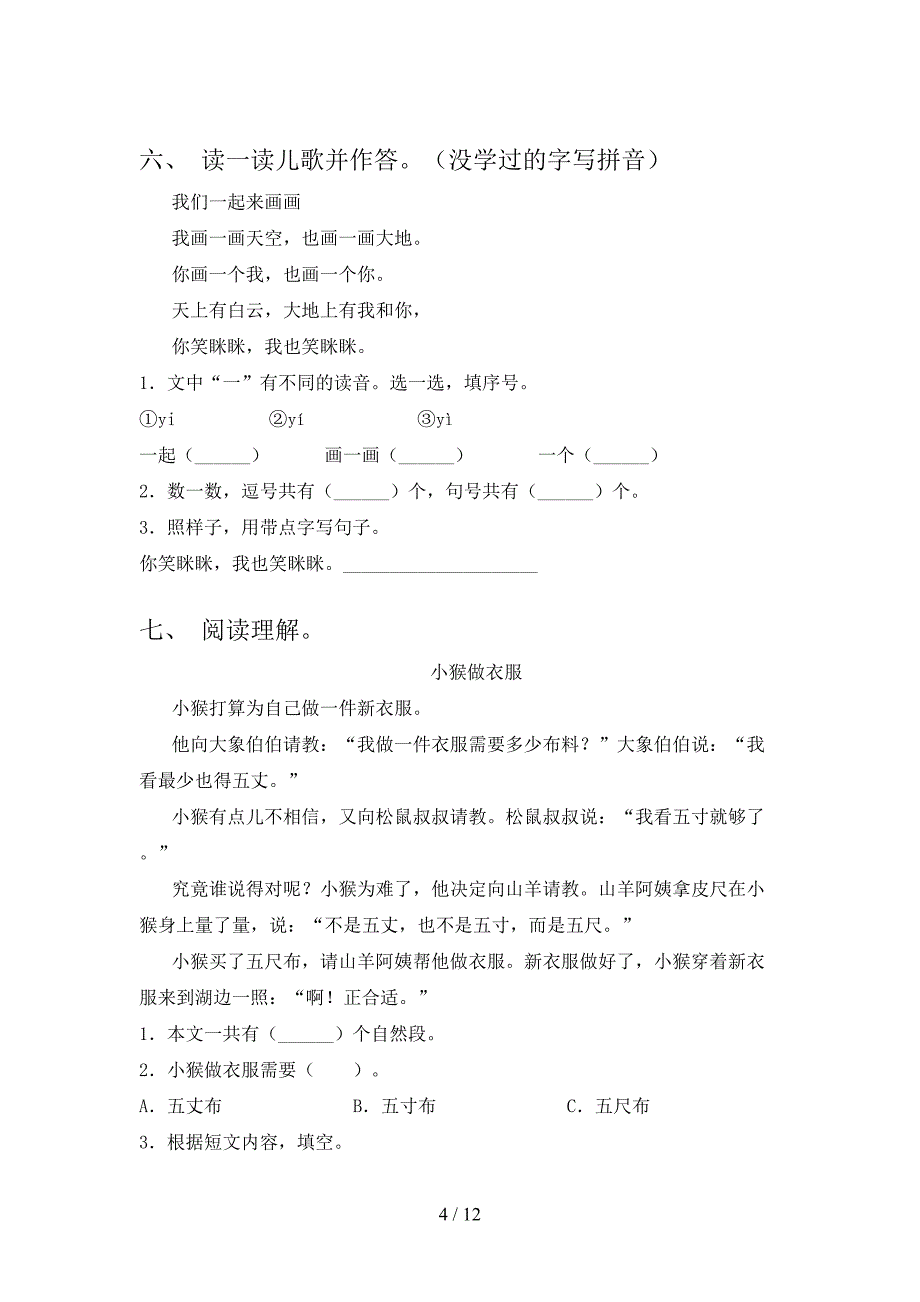 六、 读一读儿歌并作答。（没学过的字写拼音）
我们一起来画画
我画一画天空，也画一画大地。
你画一个我，也画一个你。
天上有白云，大地上有我和你，
你笑眯眯，我也笑眯眯。
1．文中“一”有不同的读音。选一选，填序号。
①yi ②yí ③yì
一起（______） 画一画（______） 一个（______）
2．数一数，逗号共有（______）个，句号共有（______）个。
3．照样子，用带点字写句子。
你笑眯眯，我也笑眯眯。_____________________
七、 阅读理解。
小猴做衣服
小猴打算为自己做一件新衣服。
他向大象伯伯请教：“我做一件衣服需要多少布料？”大象伯伯说：“我
看最少也得五丈。”
小猴有点儿不相信，又向松鼠叔叔请教。松鼠叔叔说：“我看五寸就够了
。”
究竟谁说得对呢？小猴为难了，他决定向山羊请教。山羊阿姨拿皮尺在小
猴身上量了量，说：“不是五丈，也不是五寸，而是五尺。”
小猴买了五尺布，请山羊阿姨帮他做衣服。新衣服做好了，小猴穿着新衣
服来到湖边一照：“啊！正合适。”
1．本文一共有（______）个自然段。
2．小猴做衣服需要（ ）。
A．五丈布 B．五寸布 C．五尺布
3．根据短文内容，填空。
4 / 12